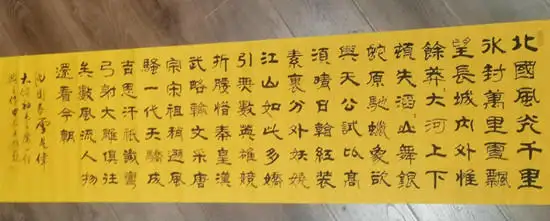 北國風光千里
冰封萬里雪飄
望長城內外惟
餘莽々大河上下
頓失滔々山舞銀
蛇原馳蠟象欲
與天公試比高
須晴日看紅装
素裹分外妖嬈
江山如此多嬌
引無數英雄競
折腰惜秦皇漢
武略輸文采唐
宗宋祖稍遜風
騷一代天驕成
吉思汗祇識彎
弓射大雕俱往
矣數風流人物
還看今朝
沁園春雪是偉